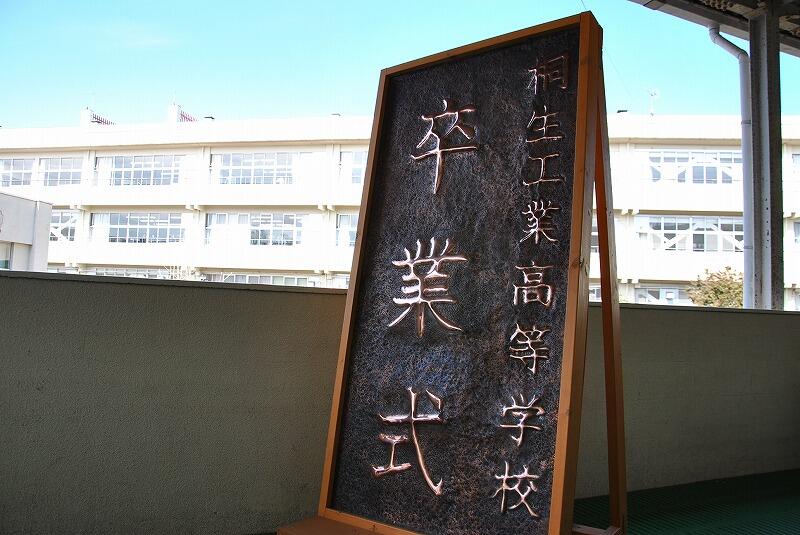 桐生工業高等学校
卒業式